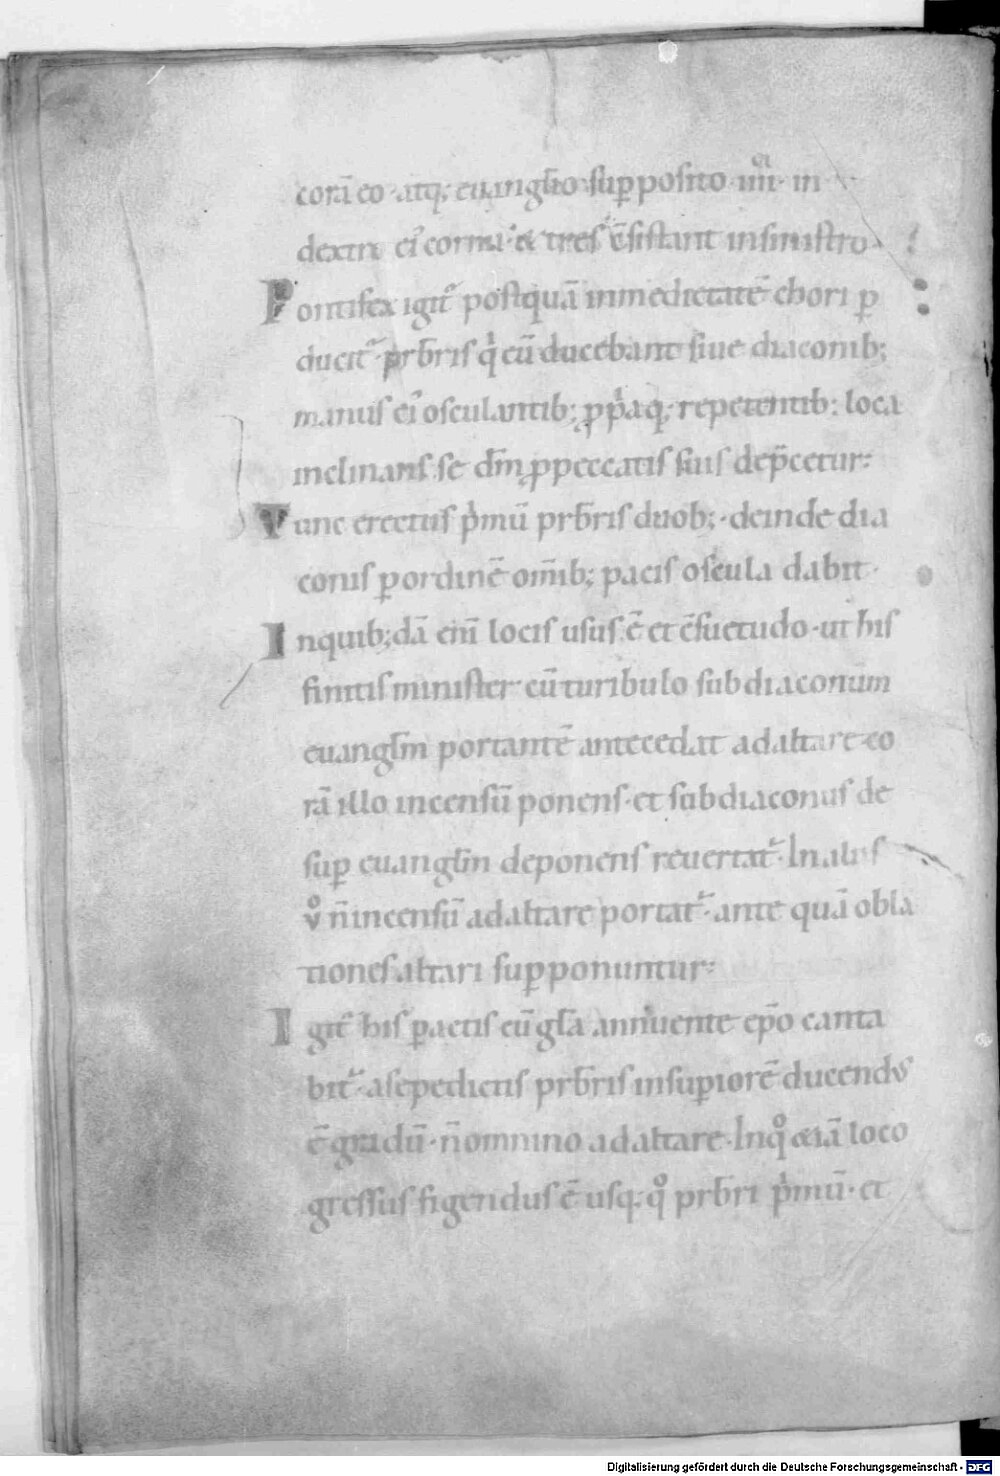 corā eo · atq; euangl̄io supposito · iiii · in
dextro ei᷒ cornu · & tres c̄sistant in sinistro ·
Pontifex igit᷑ postquā inmedietatē chori ꝑ
ducit᷑ · prb̄ris q̇ eū ducebant siue diaconib;
manus ei᷒ osculantib; ꝓp̄aq; repetentib; loca
inclinans se dm̄ ꝓ peccatis suis dep̄cetur ·
Tunc erectus p̓mū prb̄ris duob; · deinde dia
conis ꝑ ordinē om̄ib; pacis oscula dabit ·
In quib;dā eni̅ locis usus ē et c̄suetudo · ut his
finitis minister cū turibulo subdiaconum
euangl̄m portantē antecedat ad altare co
rā illo incensū ponens · et subdiaconus de
suꝑ euangl̄m deponens reuertat᷑ · In aliis
v̊ n̄ incensū ad altare portat᷑ · ante quā obla
tiones altari supponuntur ·
Igit᷑ his ꝑactis cū gl̄a annuente ep̄o canta
bit᷑ · a sepedictis prb̄ris in suꝑiorē ducendus
ē gradū · n̄ omnino ad altare · In qͦ &iā loco
gressus figendus ē usq; qͦ prb̄ri p̓mū · et
Digitalisierung gefördert durch die Deutsche Forschungsgemeinschaft - DFG